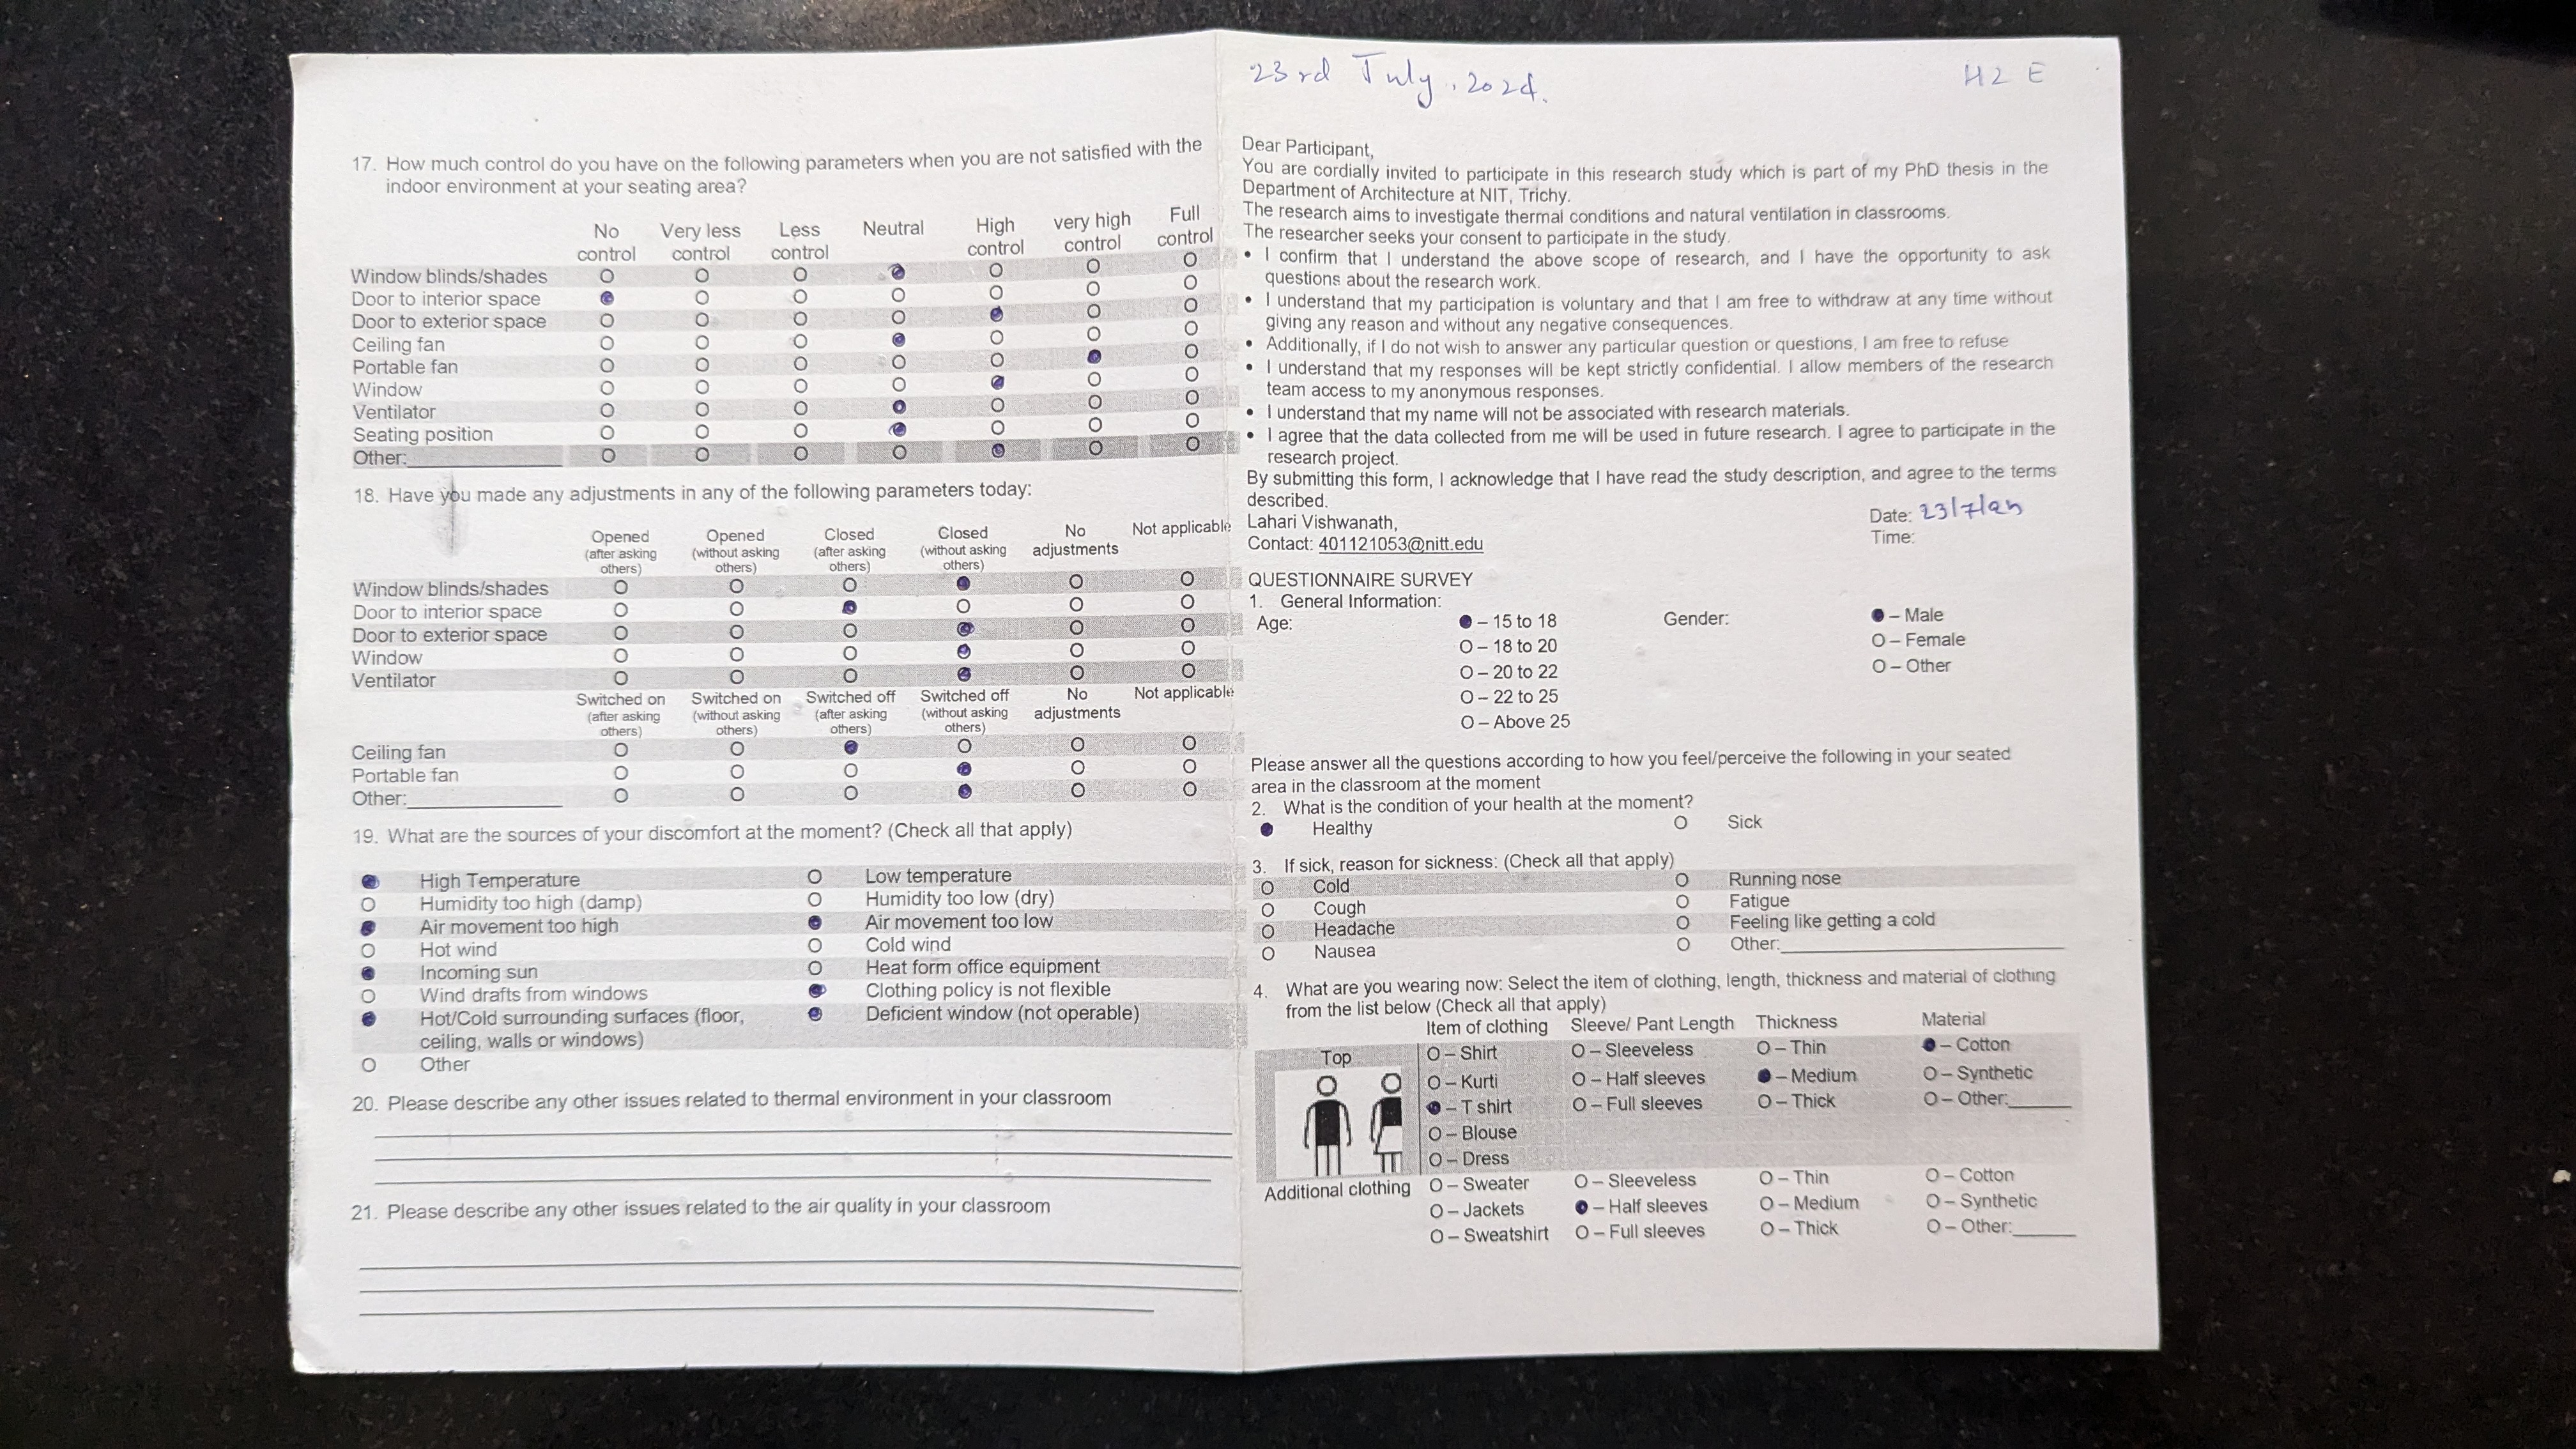 17. How much control do you have on the following parameters when you are not satisfied with the
indoor environment at your seating area?
No control Very less control Less control Neutral High control very high control Full control
Window blinds/shades
Door to interior space
Door to exterior space
Ceiling fan
Portable fan
Window
Ventilator
Seating position
Other:
18. Have you made any adjustments in any of the following parameters today:
Opened (after asking others) Opened (without asking others) Closed (after asking others) Closed (without asking others) No adjustments Not applicable
Window blinds/shades
Door to interior space
Door to exterior space
Window
Ventilator
Switched on (after asking others) Switched on (without asking others) Switched off (after asking others) Switched off (without asking others) No adjustments Not applicable
Ceiling fan
Portable fan
Other:
19. What are the sources of your discomfort at the moment? (Check all that apply)
High Temperature Low temperature
Humidity too high (damp) Humidity too low (dry)
Air movement too high Air movement too low
Hot wind Cold wind
Incoming sun Heat form office equipment
Wind drafts from windows Clothing policy is not flexible
Hot/Cold surrounding surfaces (floor, Deficient window (not operable)
ceiling, walls or windows)
Other
20. Please describe any other issues related to thermal environment in your classroom
21. Please describe any other issues related to the air quality in your classroom
23rd July, 2024. H2 E
Dear Participant,
You are cordially invited to participate in this research study which is part of my PhD thesis in the
Department of Architecture at NIT, Trichy.
The research aims to investigate thermal conditions and natural ventilation in classrooms.
The researcher seeks your consent to participate in the study.
• I confirm that I understand the above scope of research, and I have the opportunity to ask
questions about the research work.
• I understand that my participation is voluntary and that I am free to withdraw at any time without
giving any reason and without any negative consequences.
• Additionally, if I do not wish to answer any particular question or questions, I am free to refuse
• I understand that my responses will be kept strictly confidential. I allow members of the research
team access to my anonymous responses.
• I understand that my name will not be associated with research materials.
• I agree that the data collected from me will be used in future research. I agree to participate in the
research project.
By submitting this form, I acknowledge that I have read the study description, and agree to the terms
described.
Lahari Vishwanath, Date:
Contact: 401121053@nitt.edu Time:
QUESTIONNAIRE SURVEY
1. General Information:
Age: – 15 to 18 Gender: – Male
O – 18 to 20 O – Female
O – 20 to 22 O – Other
O – 22 to 25
O – Above 25
Please answer all the questions according to how you feel/perceive the following in your seated
area in the classroom at the moment
2. What is the condition of your health at the moment?
Healthy Sick
3. If sick, reason for sickness: (Check all that apply)
Cold Running nose
Cough Fatigue
Headache Feeling like getting a cold
Nausea Other:
4. What are you wearing now: Select the item of clothing, length, thickness and material of clothing
from the list below (Check all that apply)
Item of clothing Sleeve/ Pant Length Thickness Material
Top O – Shirt O – Sleeveless O – Thin – Cotton
O – Kurti O – Half sleeves – Medium O – Synthetic
– T shirt O – Full sleeves O – Thick O – Other:
O – Blouse
O – Dress
Additional clothing O – Sweater O – Sleeveless O – Thin O – Cotton
O – Jackets – Half sleeves O – Medium O – Synthetic
O – Sweatshirt O – Full sleeves O – Thick O – Other: